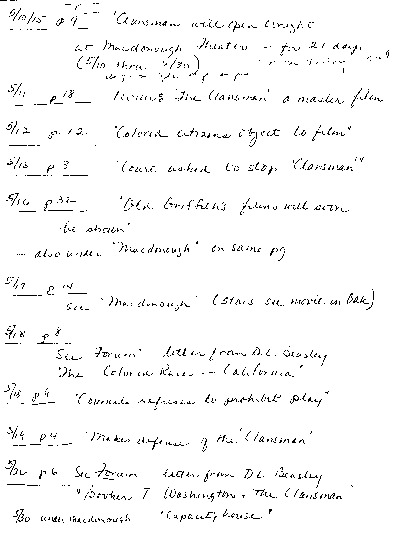 5/10/15 p 9 "Clansman will open tonight
at Macdonough Theater - for 21 days
(5/10 thru 5/30)
5/11 p 18 "The Clansman" a master film
5/12 p 12 "Colored citizens object to film"
5/13 p 3 "Court asked to stop 'Clansman'"
5/16 p 32 "Old Griffith's films will soon
be shown"
- also under "Macdonough" on same pg
5/17 see "Macdonough" (stars see movie in Oak)
5/18 p 8
See Forum letter from D.L. Beasley
"The Colored Race in California"
p 9 "Councils refuses to prohibit play"
5/19 p 4 "Makes defense of the 'Clansman'"
p 6 See Forum letter from D L Beasley
"Booker T Washington + The Clansman
5/30 under Macdonough "Capacity house"